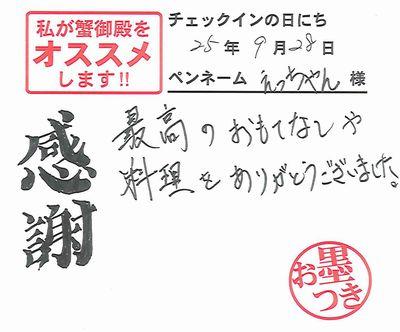 私が蟹御殿を
オススメ
します!!
チェックインの日にち
25年9月28日
ペンネーム えっちゃん 様
感謝
最高のおもてなしや
料理をありがとうございました。
お墨つき